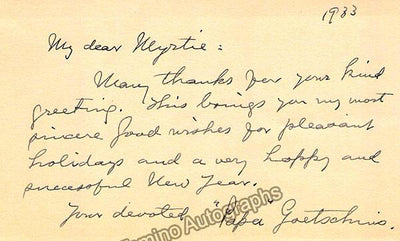 1933
My dear Myrtie:
Many thanks for your kind
greeting. This brings you my most
sincere good wishes for pleasant
holidays and a very happy and
successful New Year.
Your devoted "Papa" Goetschius.
Tamino Autographs